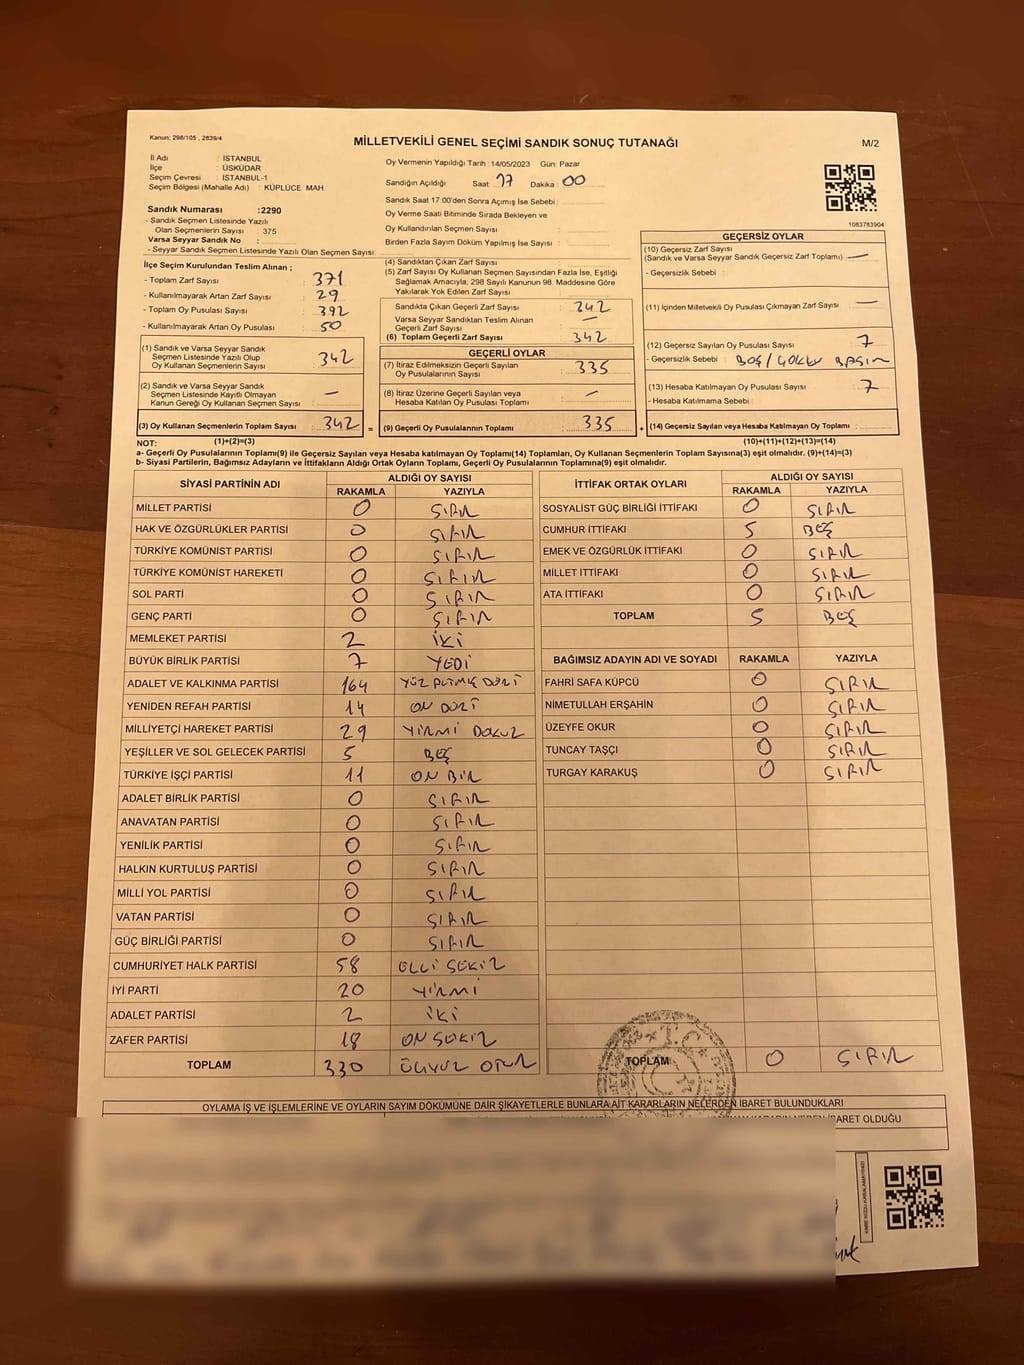 Kanun; 298/105 , 2839/4
MİLLETVEKİLİ GENEL SEÇİMİ SANDIK SONUÇ TUTANAĞI
M/2
İl Adı : İSTANBUL
İlçe : ÜSKÜDAR
Seçim Çevresi : İSTANBUL-1
Seçim Bölgesi (Mahalle Adı) : KÜPLÜCE MAH.
Sandık Numarası :2290
- Sandık Seçmen Listesinde Yazılı
Olan Seçmenlerin Sayısı : 375
Varsa Seyyar Sandık No :
- Seyyar Sandık Seçmen Listesinde Yazılı Olan Seçmen Sayısı:
Oy Vermenin Yapıldığı Tarih :14/05/2023 Gün: Pazar
Sandığın Açıldığı Saat : 17 Dakika : 00
Sandık Saat 17:00'den Sonra Açımış İse Sebebi :
Oy Verme Saati Bitiminde Sırada Bekleyen ve
Oy Kullandırılan Seçmen Sayısı :
Birden Fazla Sayım Döküm Yapılmış İse Sayısı :
1083763904
İlçe Seçim Kurulundan Teslim Alınan ;
- Toplam Zarf Sayısı : 371
- Kullanılmayarak Artan Zarf Sayısı : 29
- Toplam Oy Pusulası Sayısı : 392
- Kullanılmayarak Artan Oy Pusulası : 50
(1) Sandık ve Varsa Seyyar Sandık
Seçmen Listesinde Yazılı Olup
Oy Kullanan Seçmenlerin Sayısı : 342
(2) Sandık ve Varsa Seyyar Sandık
Seçmen Listesinde Kayıtlı Olmayan
Kanun Gereği Oy Kullanan Seçmen Sayısı : —
(3) Oy Kullanan Seçmenlerin Toplam Sayısı : 342 =
(4) Sandıktan Çıkan Zarf Sayısı :
(5) Zarf Sayısı Oy Kullanan Seçmen Sayısından Fazla İse, Eşitliği
Sağlamak Amacıyla, 298 Sayılı Kanunun 98. Maddesine Göre
Yakılarak Yok Edilen Zarf Sayısı :
Sandıkta Çıkan Geçerli Zarf Sayısı : 342
Varsa Seyyar Sandıktan Teslim Alınan
Geçerli Zarf Sayısı : —
(6) Toplam Geçerli Zarf Sayısı : 342
GEÇERLİ OYLAR
(7) İtiraz Edilmeksizin Geçerli Sayılan
Oy Pusulalarının Sayısı : 335
(8) İtiraz Üzerine Geçerli Sayılan veya
Hesaba Katılan Oy Pusulası Toplamı : —
(9) Geçerli Oy Pusulalarının Toplamı : 335 +
GEÇERSİZ OYLAR
(10) Geçersiz Zarf Sayısı
(Sandık ve Varsa Seyyar Sandık Geçersiz Zarf Toplamı) : —
- Geçersizlik Sebebi :
(11) İçinden Milletvekili Oy Pusulası Çıkmayan Zarf Sayısı : —
(12) Geçersiz Sayılan Oy Pusulası Sayısı : 7
- Geçersizlik Sebebi : BOŞ/ÇOKLU BASIM
(13) Hesaba Katılmayan Oy Pusulası Sayısı : 7
- Hesaba Katılmama Sebebi :
(14) Geçersiz Sayılan veya Hesaba Katılmayan Oy Toplamı :
NOT: (1)+(2)=(3) (10)+(11)+(12)+(13)=(14)
a- Geçerli Oy Pusulalarının Toplamı(9) ile Geçersiz Sayılan veya Hesaba katılmayan Oy Toplamı(14) Toplamları, Oy Kullanan Seçmenlerin Toplam Sayısına(3) eşit olmalıdır. (9)+(14)=(3)
b- Siyasi Partilerin, Bağımsız Adayların ve İttifakların Aldığı Ortak Oyların Toplamı, Geçerli Oy Pusulalarının Toplamına(9) eşit olmalıdır.
SİYASİ PARTİNİN ADI ALDIĞI OY SAYISI
RAKAMLA YAZIYLA
MİLLET PARTİSİ 0 SIFIR
HAK VE ÖZGÜRLÜKLER PARTİSİ 0 SIFIR
TÜRKİYE KOMÜNİST PARTİSİ 0 SIFIR
TÜRKİYE KOMÜNİST HAREKETİ 0 SIFIR
SOL PARTİ 0 SIFIR
GENÇ PARTİ 0 SIFIR
MEMLEKET PARTİSİ 2 İKİ
BÜYÜK BİRLİK PARTİSİ 7 YEDİ
ADALET VE KALKINMA PARTİSİ 164 YÜZ ALTMIŞ DÖRT
YENİDEN REFAH PARTİSİ 14 ON DÖRT
MİLLİYETÇİ HAREKET PARTİSİ 29 YİRMİ DOKUZ
YEŞİLLER VE SOL GELECEK PARTİSİ 5 BEŞ
TÜRKİYE İŞÇİ PARTİSİ 11 ON BİR
ADALET BİRLİK PARTİSİ 0 SIFIR
ANAVATAN PARTİSİ 0 SIFIR
YENİLİK PARTİSİ 0 SIFIR
HALKIN KURTULUŞ PARTİSİ 0 SIFIR
MİLLİ YOL PARTİSİ 0 SIFIR
VATAN PARTİSİ 0 SIFIR
GÜÇ BİRLİĞİ PARTİSİ 0 SIFIR
CUMHURİYET HALK PARTİSİ 58 ELLİ SEKİZ
İYİ PARTİ 20 YİRMİ
ADALET PARTİSİ 2 İKİ
ZAFER PARTİSİ 18 ON SEKİZ
TOPLAM 330 ÜÇYÜZ OTUZ
İTTİFAK ORTAK OYLARI ALDIĞI OY SAYISI
RAKAMLA YAZIYLA
SOSYALİST GÜÇ BİRLİĞİ İTTİFAKI 0 SIFIR
CUMHUR İTTİFAKI 5 BEŞ
EMEK VE ÖZGÜRLÜK İTTİFAKI 0 SIFIR
MİLLET İTTİFAKI 0 SIFIR
ATA İTTİFAKI 0 SIFIR
TOPLAM 5 BEŞ
BAĞIMSIZ ADAYIN ADI VE SOYADI RAKAMLA YAZIYLA
FAHRİ SAFA KÜPCÜ 0 SIFIR
NİMETULLAH ERŞAHİN 0 SIFIR
ÜZEYFE OKUR 0 SIFIR
TUNCAY TAŞÇI 0 SIFIR
TURGAY KARAKUŞ 0 SIFIR
TOPLAM 0 SIFIR
T.C.
OYLAMA İŞ VE İŞLEMLERİNE VE OYLARIN SAYIM DÖKÜMÜNE DAİR ŞİKAYETLERLE BUNLARA AİT KARARLARIN NELERDEN İBARET BULUNDUKLARI
İBARET OLDUĞU